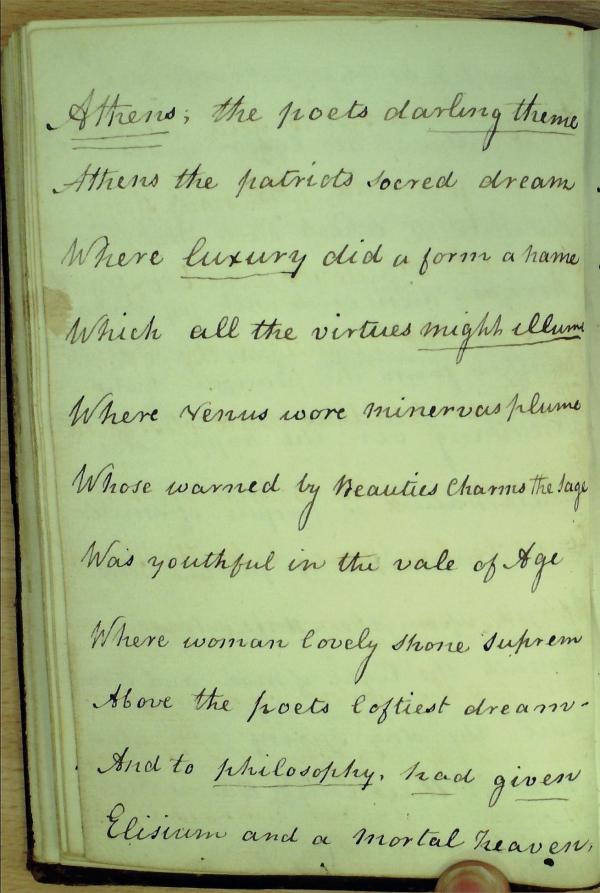 Athens; the poets darling theme
Athens the patriots socred dream
Where luxury did a form a hame
Which all the virtues might illume
Where Venus wore minervas plume
Whose warned by Beauties Charms the Sage
Was youthful in the vale of Age
Where woman lovely shone suprem
Above the poets loftiest dream-
And to philosophy, had given
Elisium and a mortal heaven,